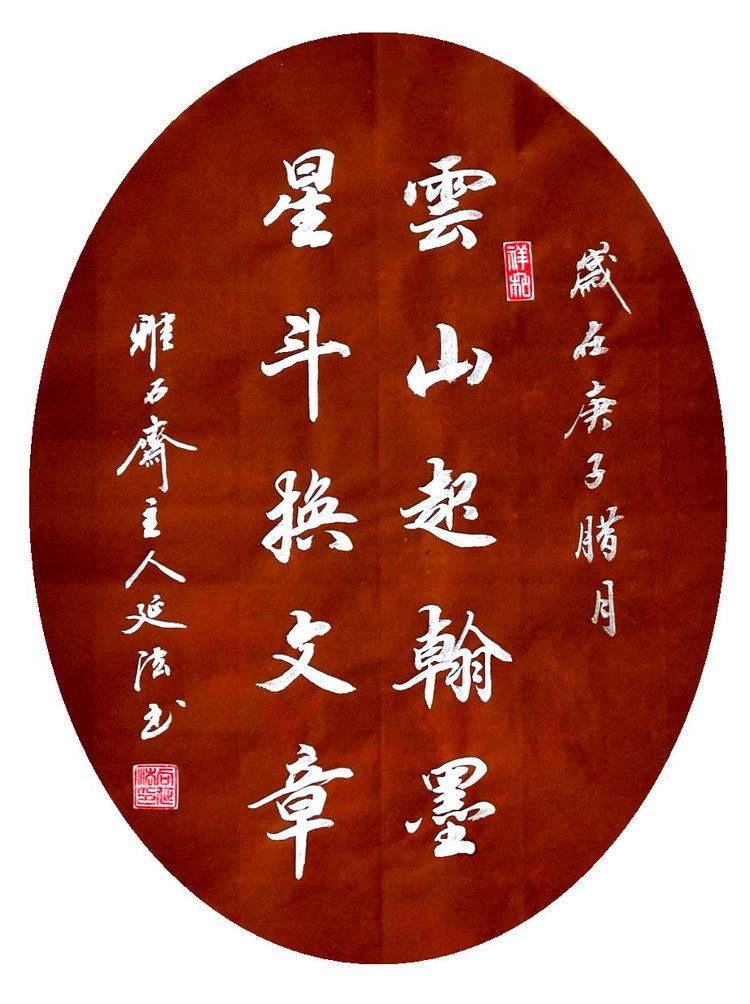 歲在庚子腊月
祥和
雲山起翰墨
星斗换文章
雅石齋主人延法书